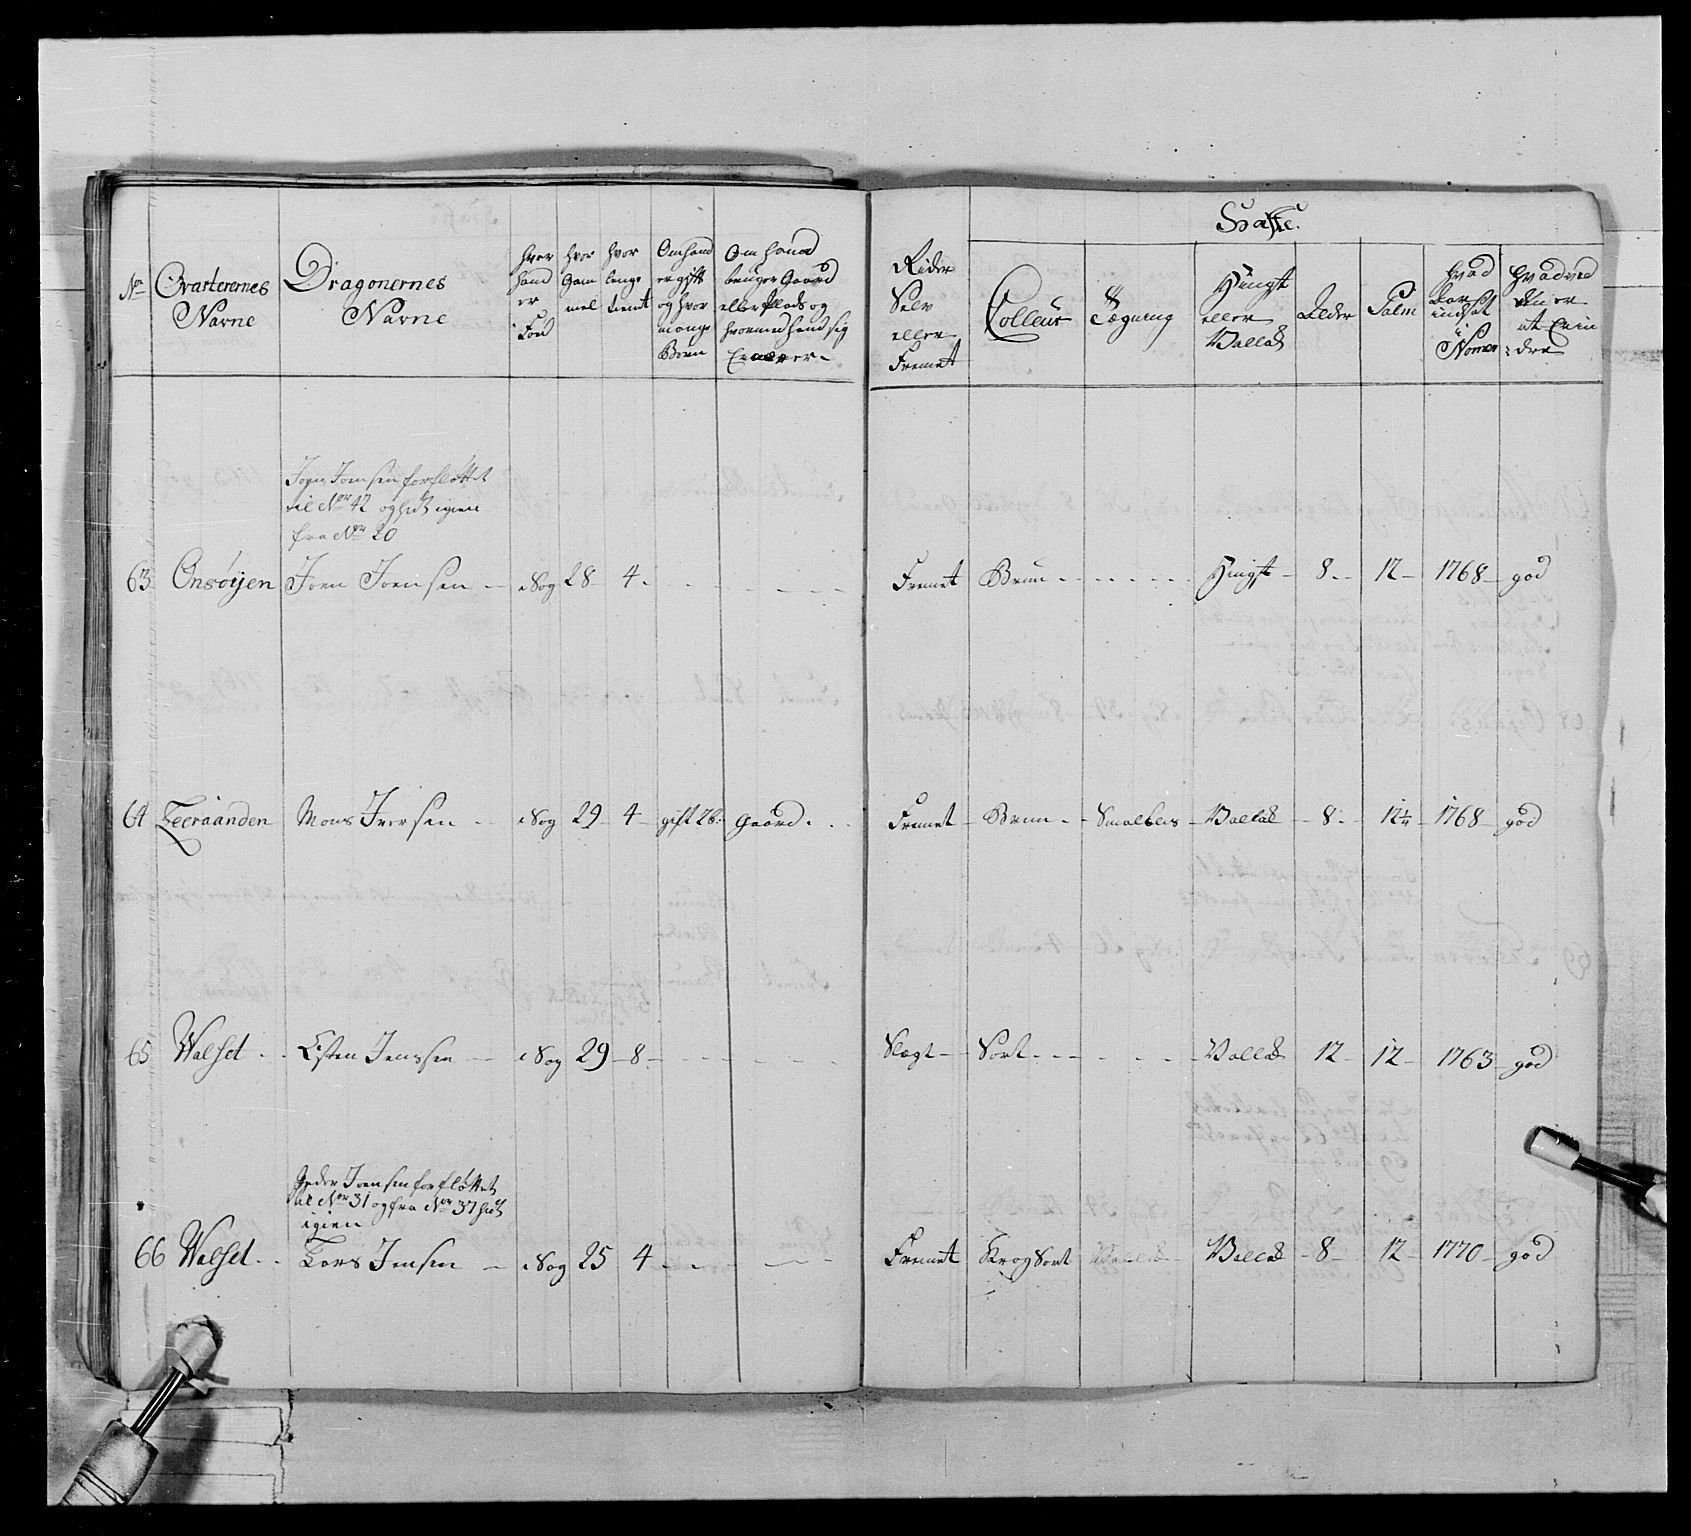 Hæste.
Nº
Qvarterernes
Navne
Dragonernes
Navne
hvor
hand
er
Fød
hvor
Gam
mel
hvor
lenge
tient
Om hand
er gift
og hvor
mange
Børn
Om hand
bruger Gaard
eller Plads og
hvormed hand sig
Ernærer
Rider
Selv
eller
Fremet
Colleur
Tægning
Hingst
eller
Vallak
Alder
Palm
hvad
Aar
indsat
i
Nomer
hvad ved
den er
at Erin
dre
Joen Joensen forfløttet
til Nr 42 og hidt igien
fra Nr 20
63 Onsøijen Joen Joensen Sog 28 4 Fremet Brun Hingst 8 12 1768 god
64 Leeraanden Mons Iversen Sog 29 4 gift 2b. Gaard Fremet Brun Smalblis Vallak 8 12¼ 1768 god
65 Walset Eisten Jenssen Sog 29 8 Slægt Sort Vallak 12 12 1763 god
Peder Joensen forfløttet
til Nr 31 og fra Nr 37 hidt
igien
66 Walset Lars Jensen Sog 25 4 Fremet Krog Sort Vallak 8 12 1770 god